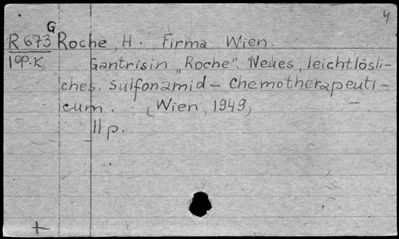 4
G
R 673 Roche, H. Firma Wien.
10p.K Gantrisin "Roche". Neues, leichtlösli-
ches Sulfonamid - Chemotherapeuti-
cum. (Wien, 1949)
11 p.
+